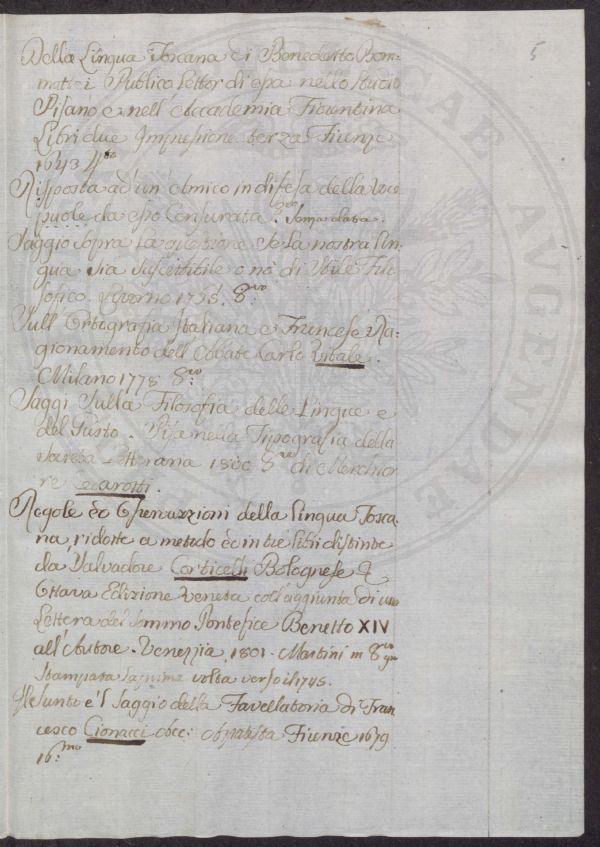 5
Della Lingua Toscana di Benedetto Bom-
mattei Publico Lettor di essa nello Studio
Pisano e nell'Accademia Fiorentina
Libri due Impressione terza Firenze
1643 4to
Risposta ad un' Amico in difesa della Voce
puole da esso Censurata. 8vo senza data.
Saggio sopra la quistione se la nostra lin-
gua sia suscettibile o nò di Stile Filo
sofico. Livorno 8:vo
Sull'Ortografia Italiana e Francese Ra-
gionamento dell'Abate Carlo Vitale.
Milano 1778 8:vo
Saggi Sulla Filosofia delle Lingue e
del Gusto. Pisa nella Tipografia della
Società Letteraria 1800 8vo di Melchior
re Cesarotti.
Regole ed Osservazioni della Lingua Tosca-
na, ridotte a metodo ed in tre libri distinte
da Salvadore Corticelli Bolognese &
Ottava Edizione Veneta coll'aggiunta di una
Lettera del Sommo Pontefice Benetto XIV
all'Autore. Venezia 1801. Martini in 8vo
Stampata la prima volta verso il 1745.
Il Sunto è 'l Saggio della Favellatoria di Fran
cesco Cionacci Firenze 1679
16:mo